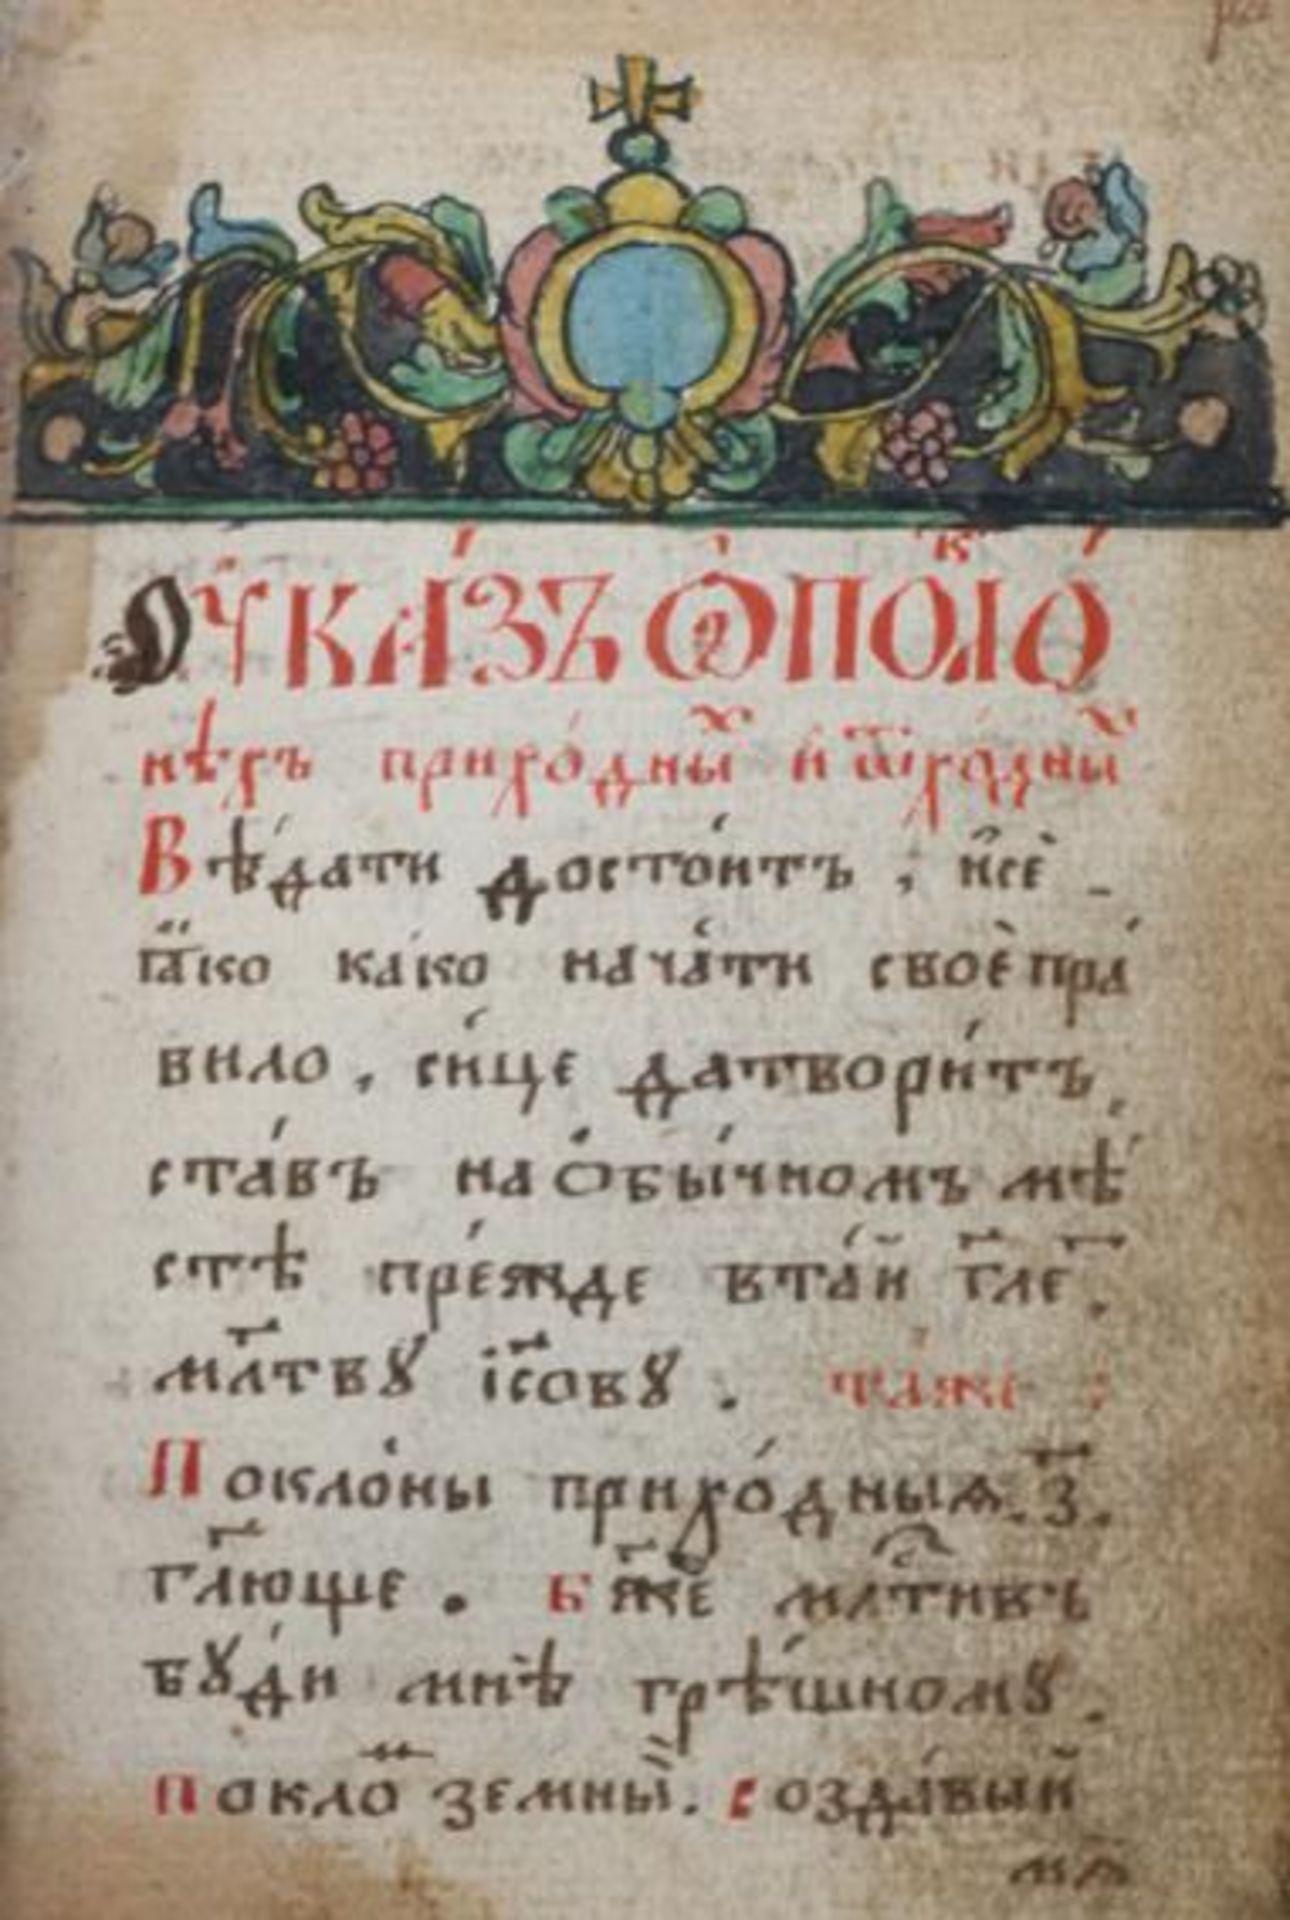 Оу҆ка́зъ ѡ҆покло́
нѣхъ прихо́дны́хъ и҆ ѿхо́дны́хъ
Вѣ́дати достои́тъ , и҆се̏ -
ꙗ҆́ко ка́ко нача́ти свое̏ пра́
вило , си́це да твори́тъ ,
ста́въ на ѻ҆бы́чномъ мѣ́
стѣ пре́жде вта́й гл҃е ,
мл҃твꙋ і҆с҃овꙋ . та́же :
Покло́ны прихо́дныѧ . з҃ .
гл҃юще . Бж҃е мл҃тивъ
бꙋ́ди мнѣ̀ грѣ́шномꙋ .
покло̑ земны́й . созда́вый
мѧ